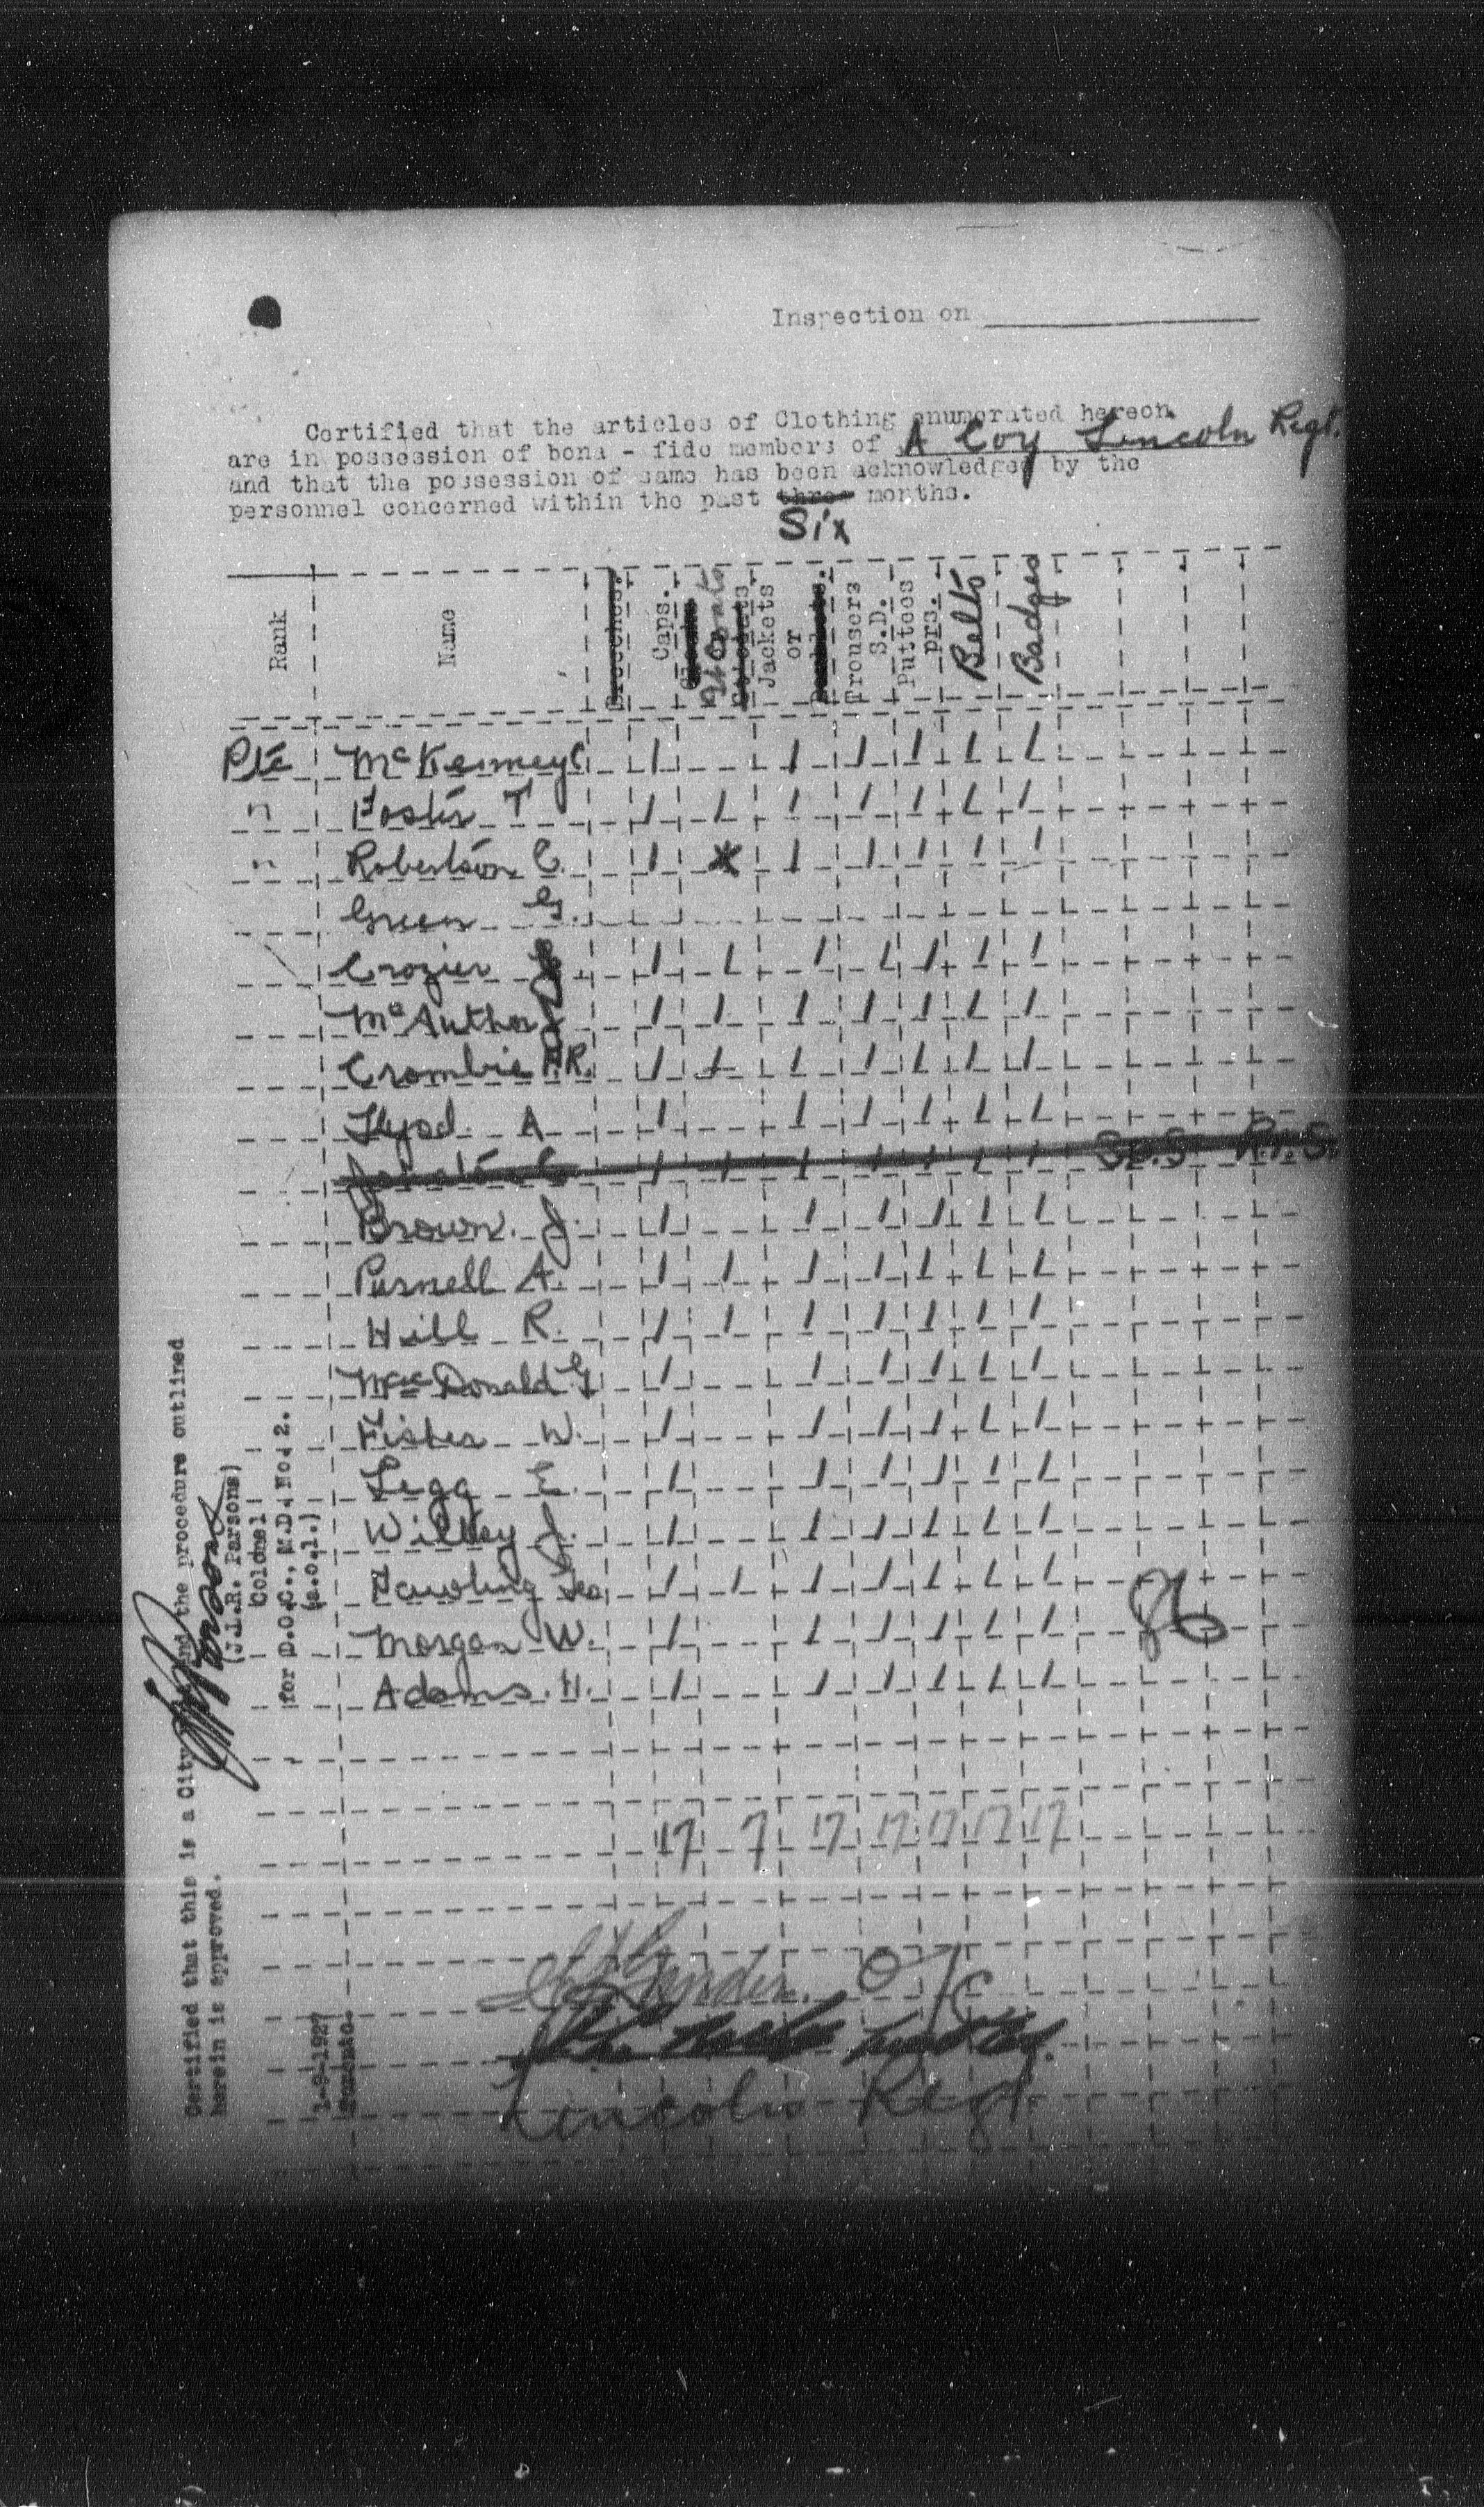 Inspection on
Certified that the articles of Clothing enumerated hereon
are in possession of bona - fide members of A Coy Lincoln Regt.
and that the possession of same has been acknowledged by the
personnel concerned within the past three months.
Six
Rank Name Breeches. Caps. Jackets or Trousers S.D. Puttees prs. Belts Badges
Pte McKenney C 1 1 1 1 1 1
" Foster T 1 1 1 1 1 1 1
" Robertson C. 1 x 1 1 1 1 1
Green G.
Crozier 1 1 1 1 1 1 1
McAuthor J 1 1 1 1 1 1 1
Crombie F.R. 1 1 1 1 1 1 1
A 1 1 1 1 1 1
1 1 1 1 1 1 1
Brown. J. 1 1 1 1 1 1
Purnell A. 1 1 1 1 1 1 1
Hill R. 1 1 1 1 1 1 1
MacDonald G 1 1 1 1 1 1
Fisher W. 1 1 1 1 1 1
Legg E. 1 1 1 1 1 1
J. 1 1 1 1 1 1
1 1 1 1 1 1 1
Morgan W. 1 1 1 1 1 1
Adams. H. 1 1 1 1 1 1
17 7 17 17 17 17 17
O/C
Lincoln Regt.
Certified that this is a City and the procedure outlined
herein is approved.
Parsons
(J.L.R. Parsons)
Colonel
for D.O.C., M.D. No. 2.
(s.o.l.)
1-9-1927
Toronto.